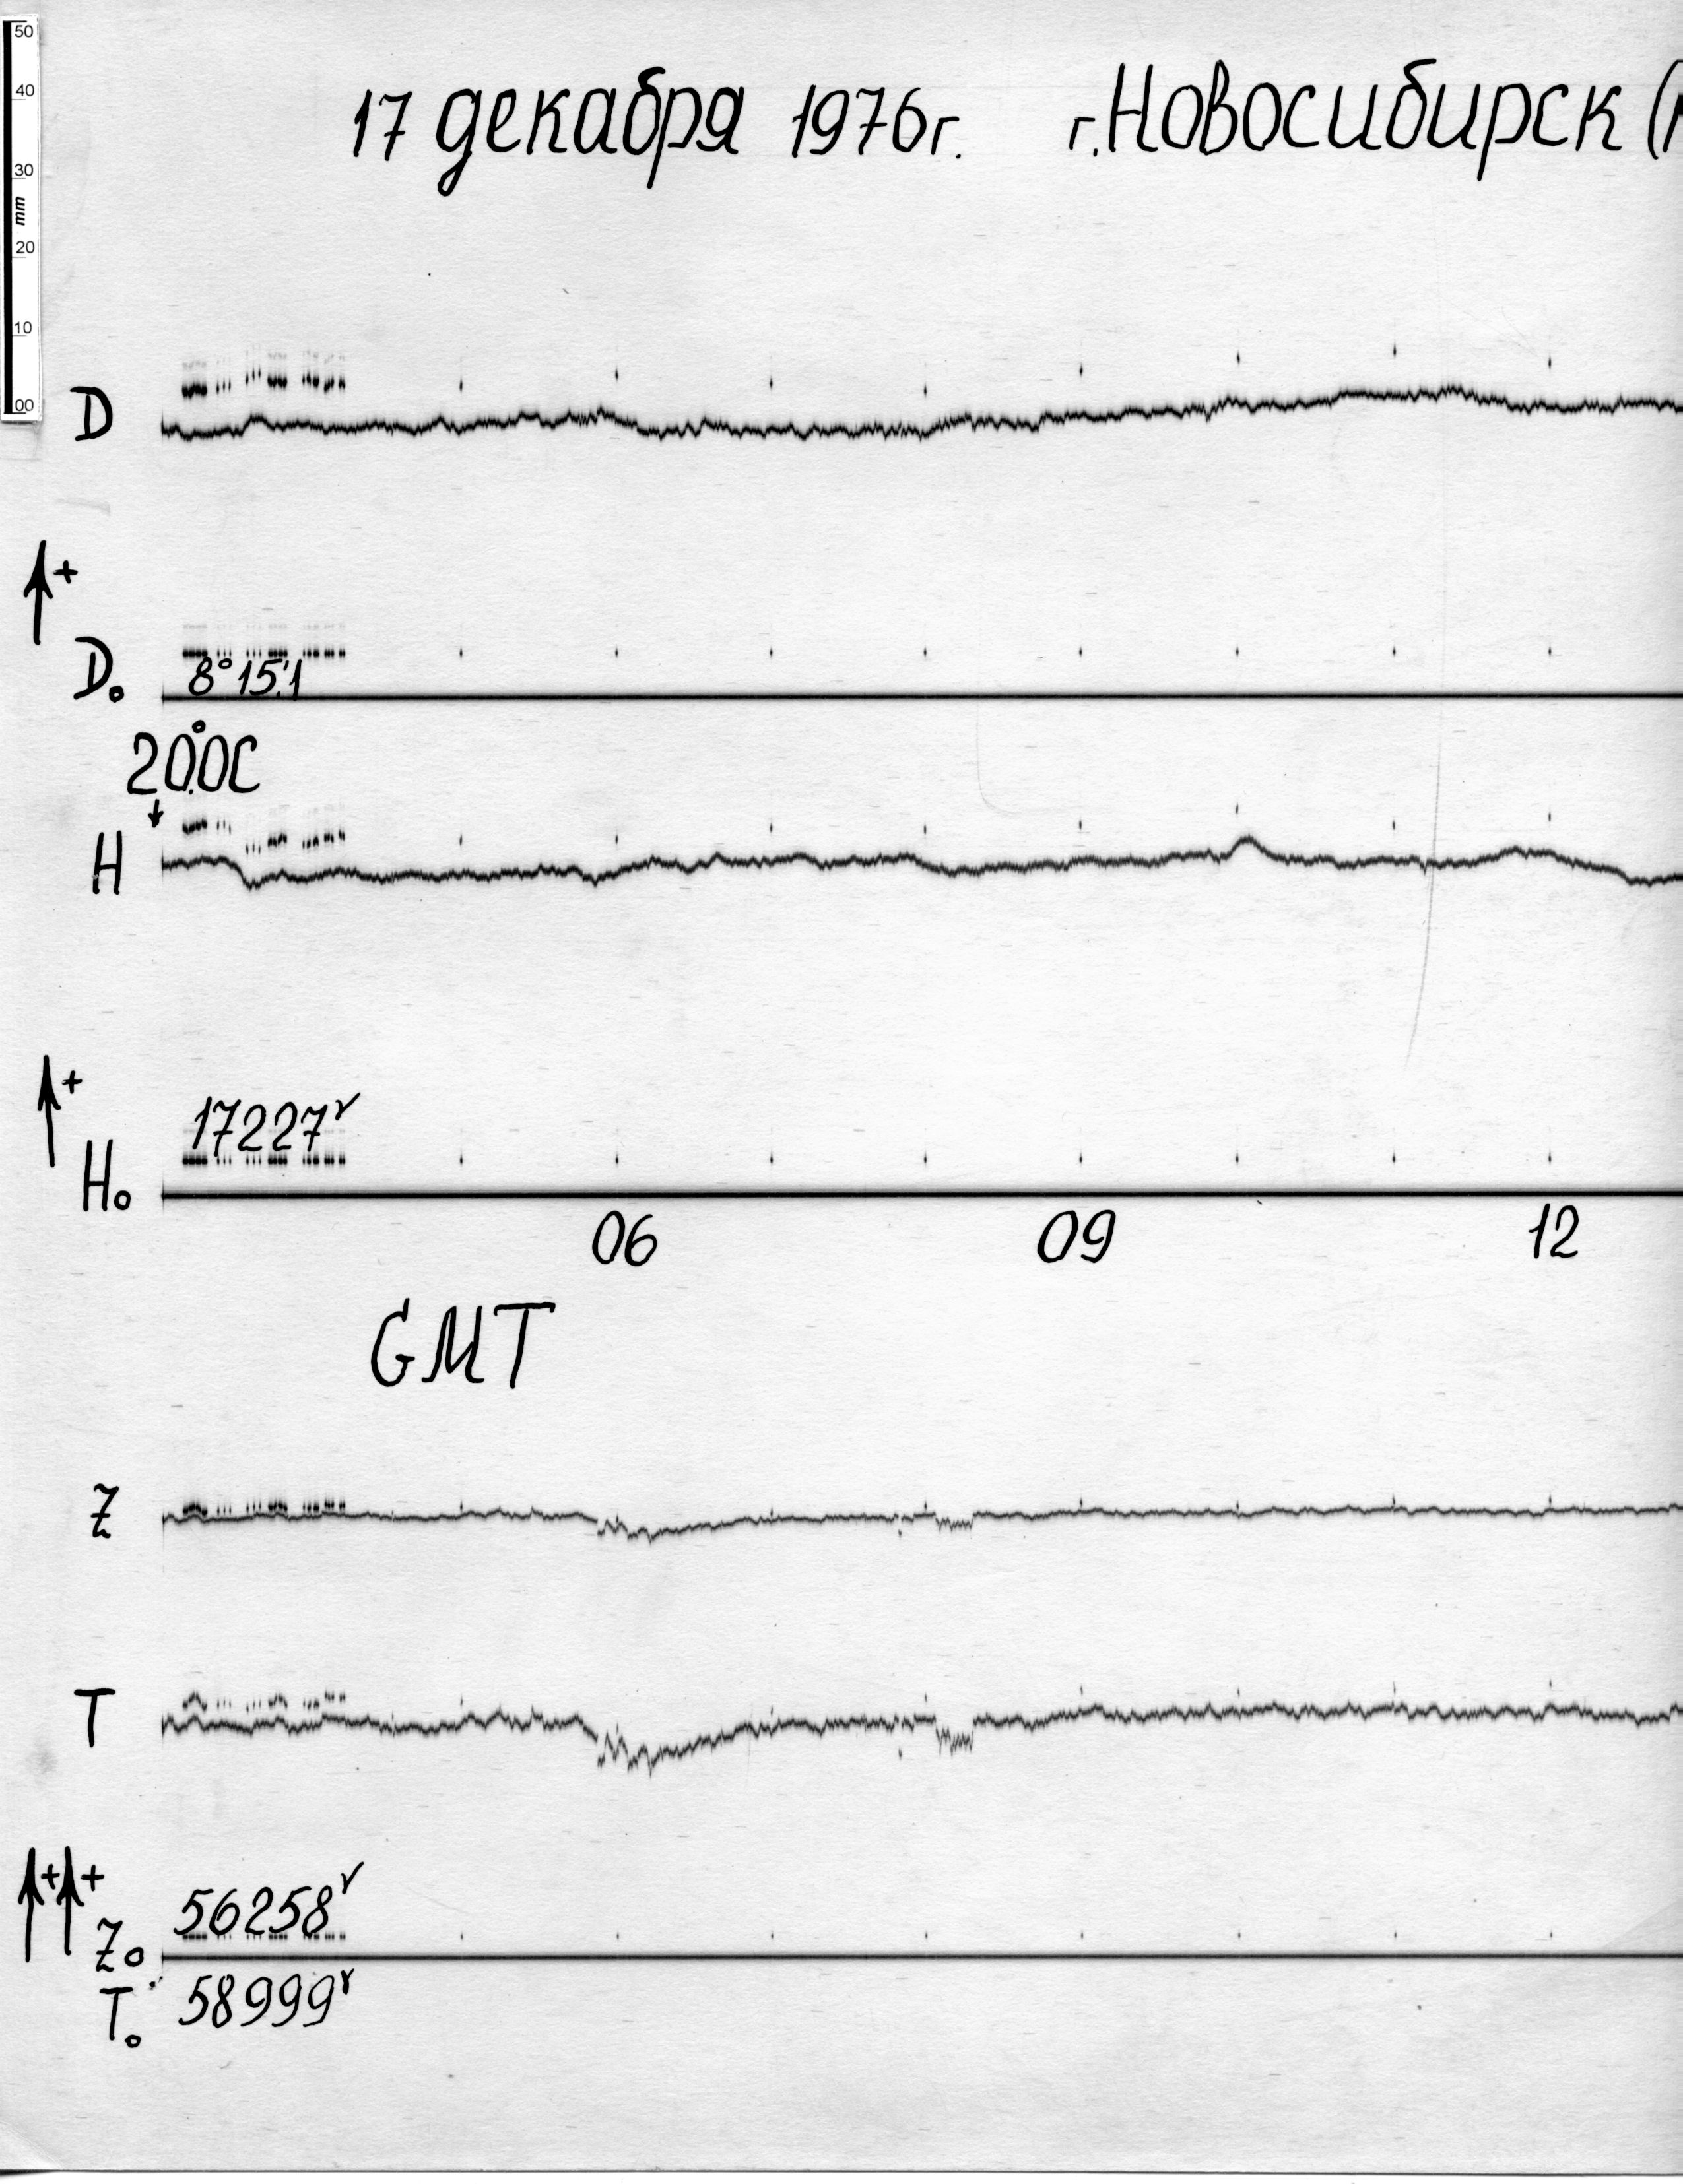 50
40
30
mm
20
10
00
17 декабря 1976г. г.Новосибирск (
D
+
D₀ 8°15'.1
20.°0C
H
+
17227γ
H₀
06 09 12
GMT
Z
T
+ +
56258γ
Z₀
T₀ 58999γ